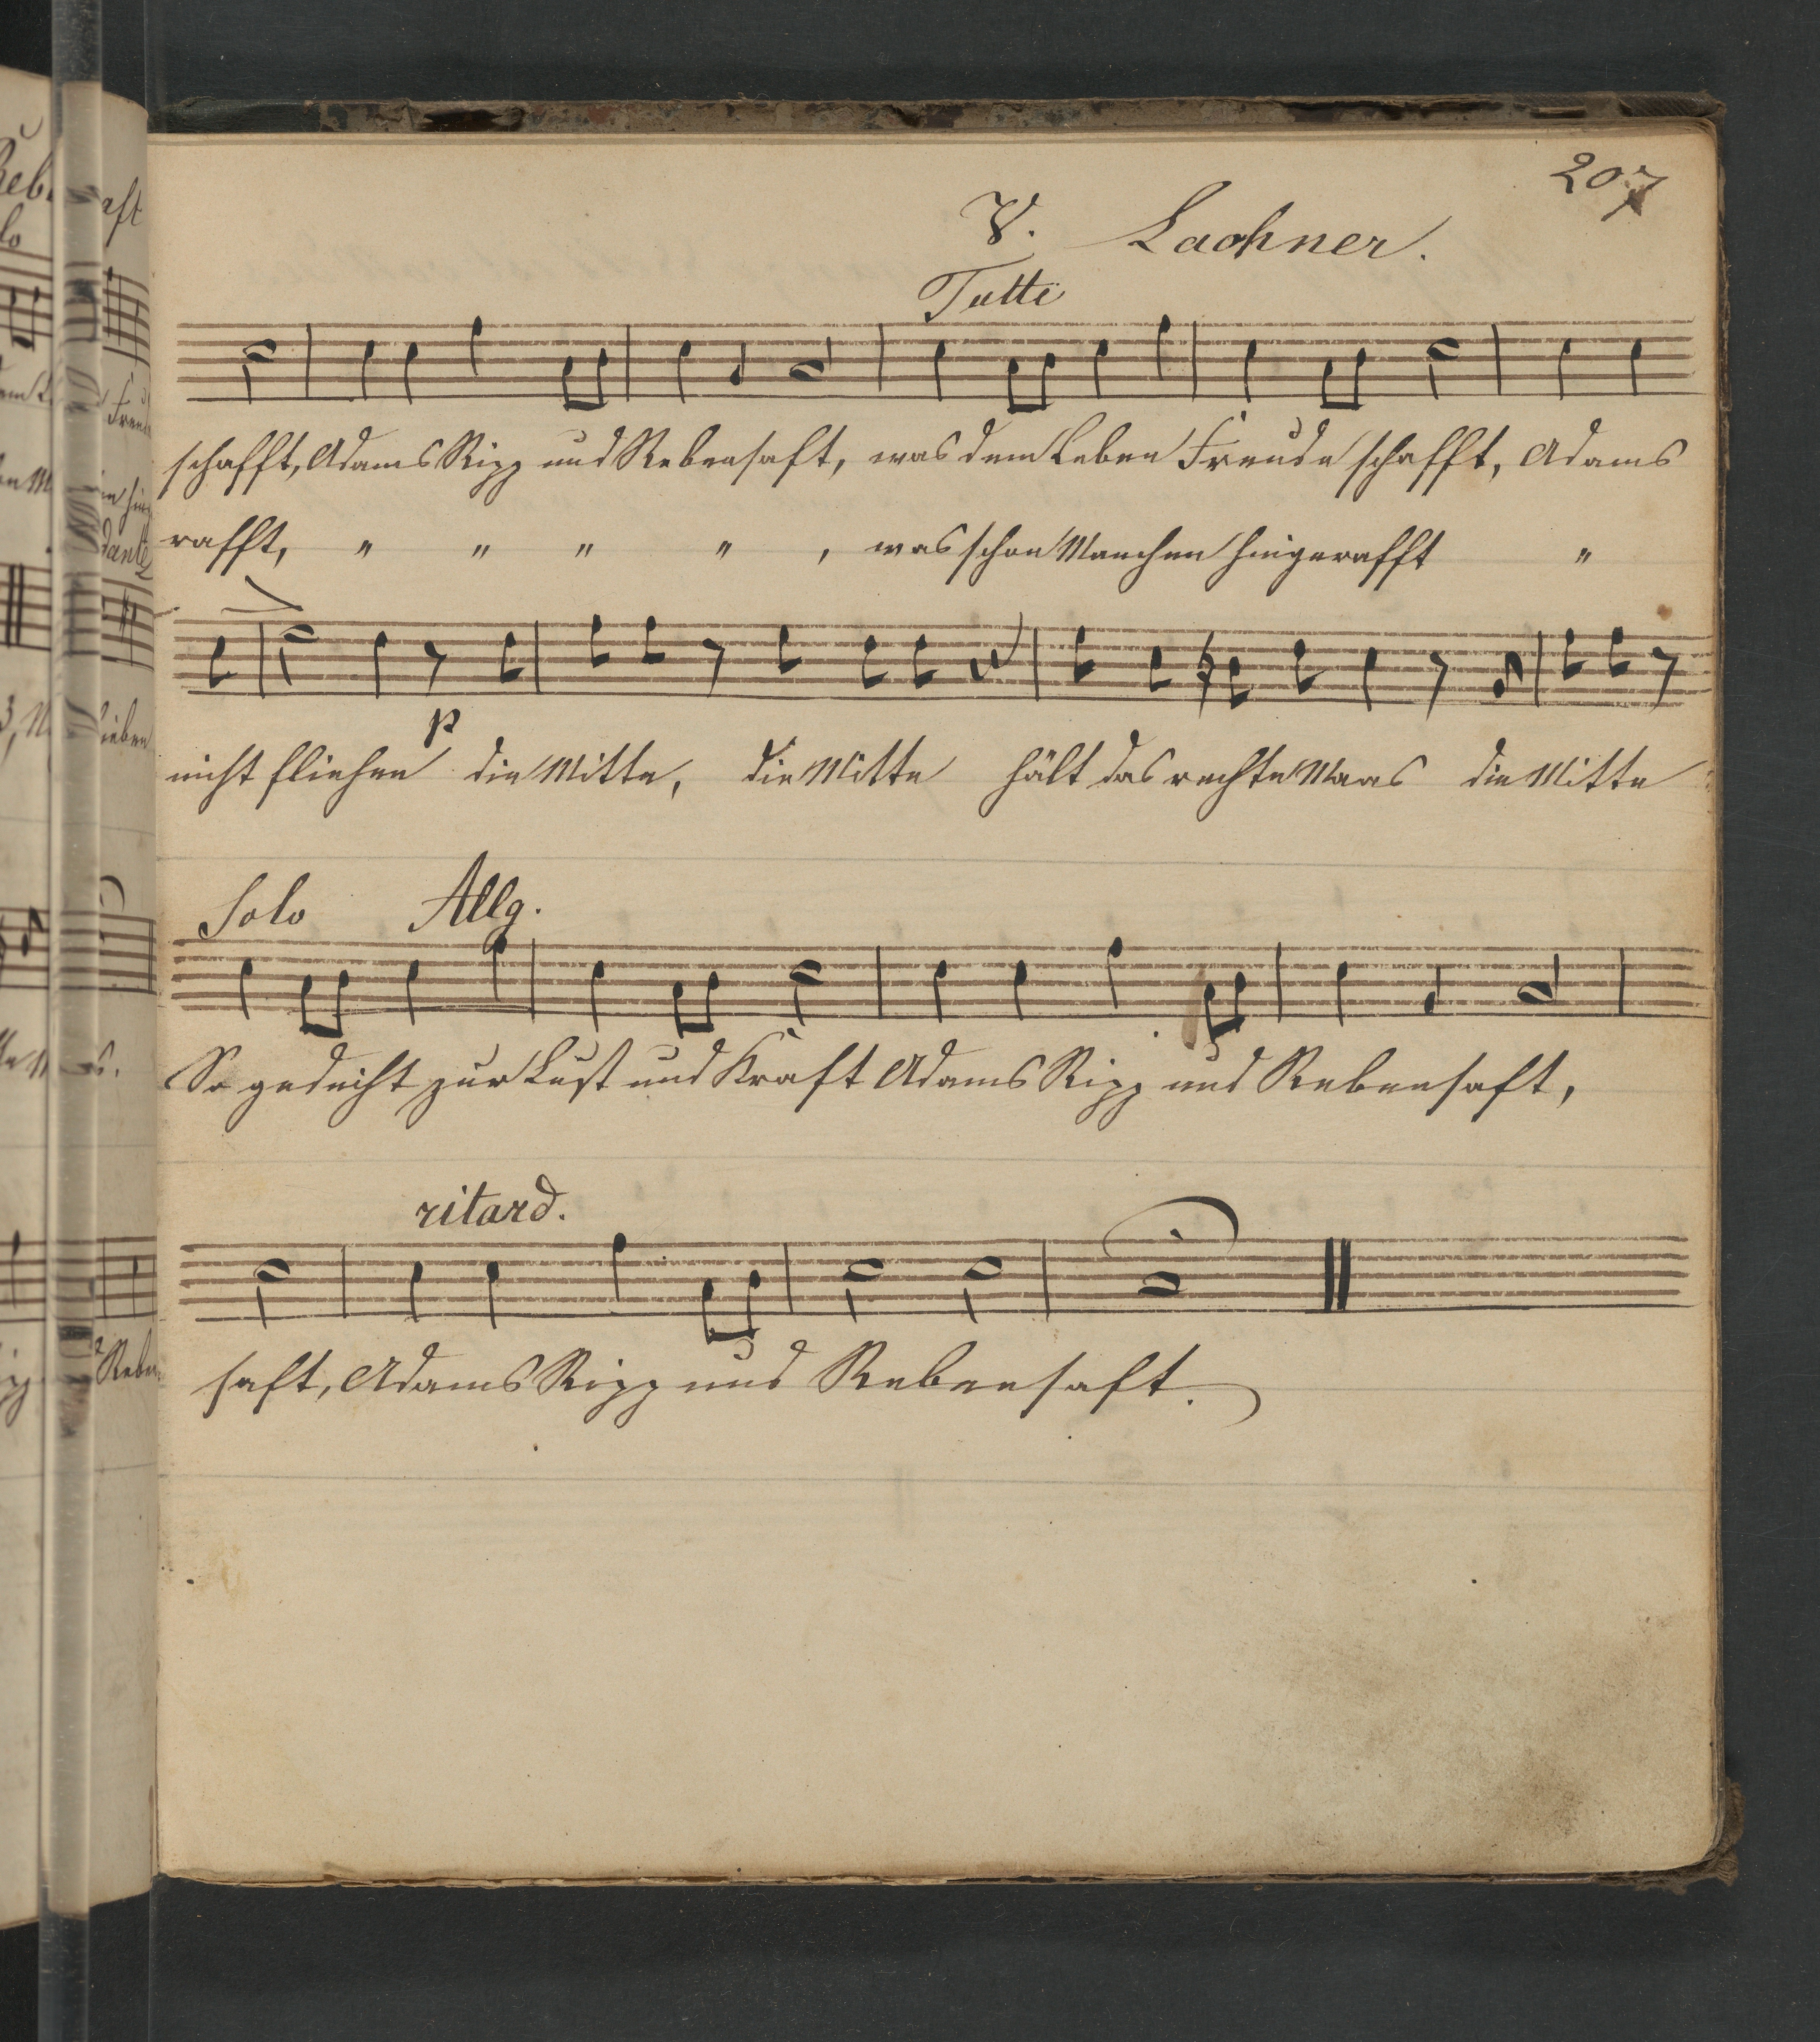 207
V. Lachner.
Tutti
schafft, Adams Ripp und Rebensaft, was dem Leben Freude schafft, Adams
rafft, " " " " , was schon Manchen hingerafft "
p
nicht fliehen die Mitte, die Mitte hält das rechte Maas die Mitte
Solo Allg.
So gedeiht zur Lust und Kraft Adams Ripp und Rebensaft,
ritard.
saft, Adams Ripp und Rebensaft.